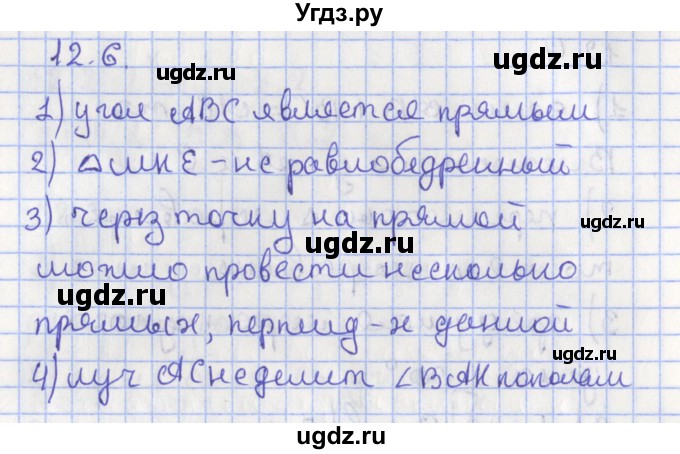 Угдз.ру
12.6.
1) угол ABC является прямым
2) △MKE - не равнобедренный
3) через точку на прямой
можно провести несколько
прямых, перпенд-х данной
4) луч AC не делит ∠BAK пополам
ugdz.ru
ugdz.ru
ugdz.ru
ugdz.ru
ugdz.ru
ugdz.ru
ugdz.ru
ugdz.ru
ugdz.ru
ugdz.ru